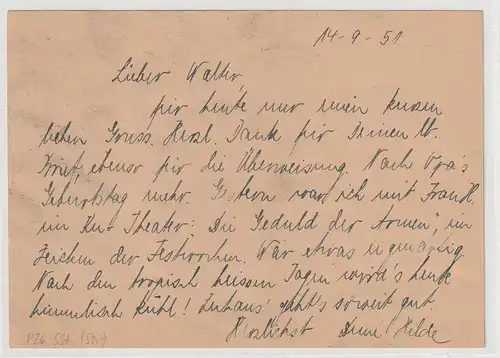 14-9-51
Lieber Walter,
für heute nur einen kurzen
lieben Gruss. Herzl. Dank für Deinen lb.
Brief, ebenso für die Überweisung. Nach Opa's
Geburtstag mehr. Gestern war ich mit
im Kur Theater: "Die Geduld der Armen", im
Zeichen der Festwochen. War etwas
Nach den tropisch heissen Tagen wird's heute
himmlisch kühl! Zuhaus' geht's soweit gut.
Herzlichst Deine Hilde